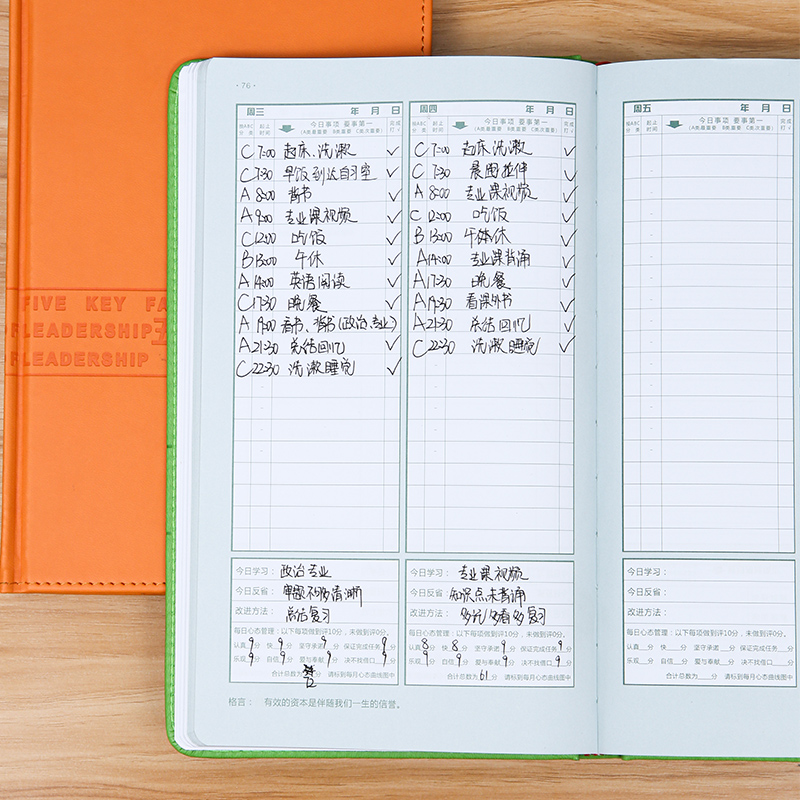 FIVE KEY FA
LEADERSHIP
LEADERSHIP
·76·
周三 年 月 日
按ABC分类 起止时间 今日事项 要事第一 (A类最重要 B类重要 C类次重要) 完成打√
C 7:00 起床、洗漱 ✓
C 7:30 早饭 到达自习室 ✓
A 8:00 背书 ✓
A 9:00 专业课视频 ✓
C 12:00 吃饭 ✓
B 13:00 午休 ✓
A 14:00 英语阅读 ✓
C 17:30 晚餐 ✓
A 19:00 看书、背书(政治、专业) ✓
A 21:30 总结回忆 ✓
C 22:30 洗漱 睡觉 ✓
今日学习： 政治 专业
今日反省： 审题不够清晰
改进方法： 总结复习
每日心态管理：以下每项做到评10分，未做到评0分。
认真9分 快9分 坚守承诺9分 保证完成任务9分
乐观9分 自信9分 爱与奉献9分 决不找借口9分
合计总数为72分 请标到每月心态曲线图中
周四 年 月 日
按ABC分类 起止时间 今日事项 要事第一 (A类最重要 B类重要 C类次重要) 完成打√
C 7:00 起床 洗漱 ✓
C 7:30 晨跑 拉伸 ✓
A 8:00 专业课视频 ✓
C 12:00 吃饭 ✓
B 13:00 午休 ✓
A 14:00 专业课背诵 ✓
A 17:30 晚餐 ✓
A 19:30 看课外书 ✓
A 21:30 总结回忆 ✓
C 22:30 洗漱 睡觉 ✓
今日学习： 专业课视频
今日反省： 知识点未背诵
改进方法： 多记 多看 多复习
每日心态管理：以下每项做到评10分，未做到评0分。
认真8分 快8分 坚守承诺9分 保证完成任务9分
乐观9分 自信9分 爱与奉献9分 决不找借口分
合计总数为61分 请标到每月心态曲线图中
格言： 有效的资本是伴随我们一生的信誉。
周五 年 月 日
按ABC分类 起止时间 今日事项 要事第一 (A类最重要 B类重要 C类次重要) 完成打√
今日学习：
今日反省：
改进方法：
每日心态管理：以下每项做到评10分，未做到评0分。
认真__分 快__分 坚守承诺__分 保证完成任务__分
乐观__分 自信__分 爱与奉献__分 决不找借口__分
合计总数为__分 请标到每月心态曲线图中